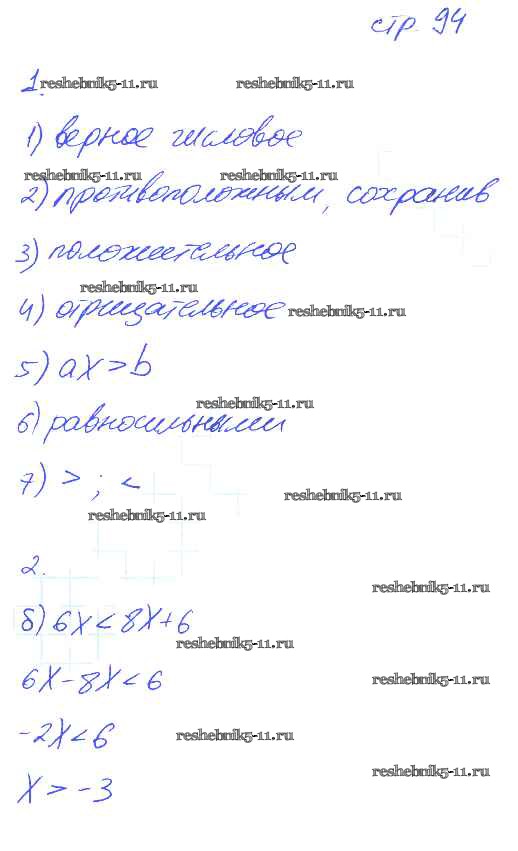 стр 94
1. reshebnik5-11.ru reshebnik5-11.ru
1) верное числовое
reshebnik5-11.ru reshebnik5-11.ru
2) противоположным, сохранив
3) положительное
reshebnik5-11.ru
4) отрицательное reshebnik5-11.ru
5) ax > b
reshebnik5-11.ru
6) равносильными
7) > ; <
reshebnik5-11.ru
reshebnik5-11.ru
2.
reshebnik5-11.ru
б) 6x < 8x + 6
reshebnik5-11.ru
6x - 8x < 6 reshebnik5-11.ru
-2x < 6 reshebnik5-11.ru
reshebnik5-11.ru
x > -3